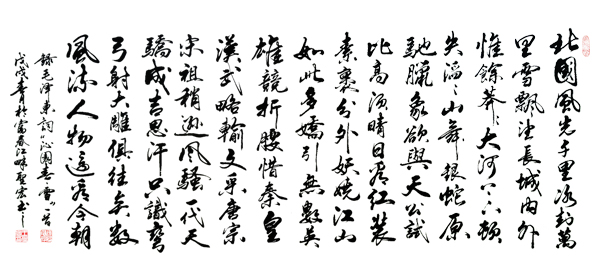 北國風光千里冰封萬
里雪飄望長城內外
惟餘莽〻大河上下頓
失滔〻山舞銀蛇原
馳臘象欲與天公試
比高須晴日看紅裝
素裹分外妖嬈江山
如此多嬌引無數英
雄競折腰惜秦皇
漢武略輸文采唐宗
宋祖稍遜風騷一代天
驕成吉思汗只識彎
弓射大雕俱往矣數
風流人物還看今朝
錄毛澤東詞沁園春雪一首
戊戌於富春江畔